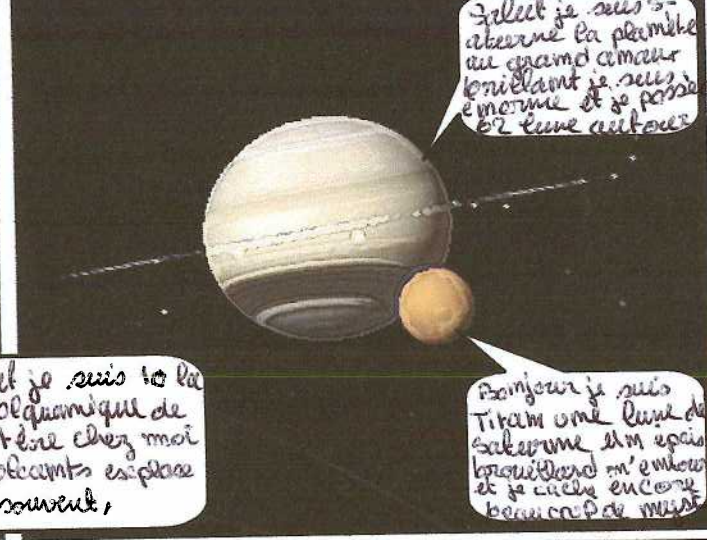 Salut je suis s-
aturne la planète
au grand amaux
brillamt je suis
énorme et je possè
62 lune autour
et je suis Io la
olquamique de
tère chez moi
olcamts esxplose
souvent,
Bomjour je suis
Titam ume lune de
saturme um épais
brouillard m'entour
et je cache encore
beaucoup de myst